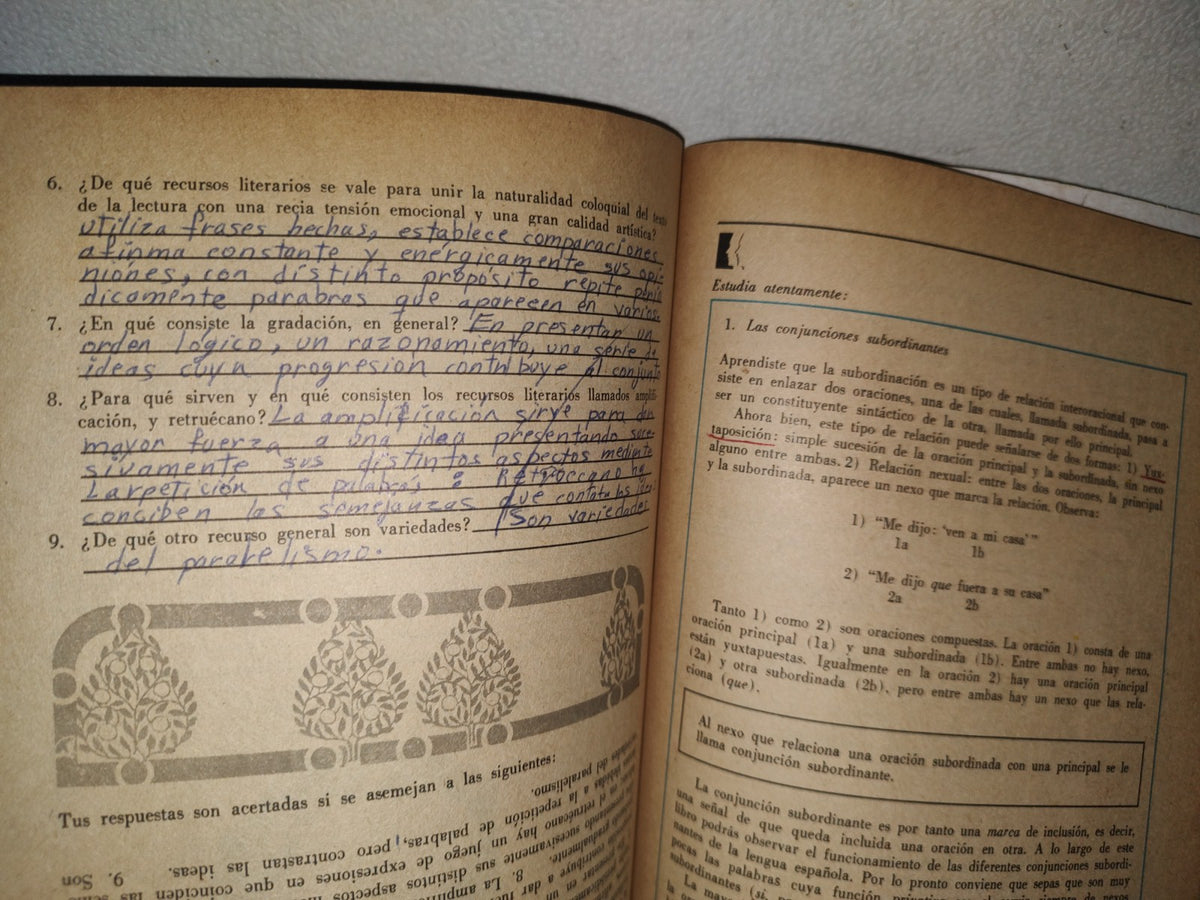 6. ¿De qué recursos literarios se vale para unir la naturalidad coloquial del texto
de la lectura con una recia tensión emocional y una gran calidad artística?
utiliza frases hechas, establece comparaciones
afirma constante y enérgicamente sus opi
niones, con distinto propósito repite perió
dicamente parabras que aparecen en varias
7. ¿En qué consiste la gradación, en general? En presentar un
orden lógico, un razonamiento, una serie de
ideas cuya progresión contribuye al conjunto
8. ¿Para qué sirven y en qué consisten los recursos literarios llamados amplifi-
cación, y retruécano? La amplificación sirve para dar
mayor fuerza a una idea presentando suce-
sivamente sus distintos aspectos mediante
La rpetición de palabras
conciben las semejanzas que
9. ¿De qué otro recurso general son variedades? Son variedades
del parabelismo.
Tus respuestas son acertadas si se asemejan a las siguientes:
variedades del paralelismo.
a la repetición de palabras, pero contrastan las ideas. 9. Son
en el retruécano hay un juego de expresiones en que coinciden las
sucesivamente sus distintos aspectos
contribuye a dar
8. La
Estudia atentamente:
1. Las conjunciones subordinantes
Aprendiste que la subordinación es un tipo de relación interoracional que con-
siste en enlazar dos oraciones, una de las cuales, llamada subordinada, pasa a
ser un constituyente sintáctico de la otra, llamada por ello principal.
Ahora bien, este tipo de relación puede señalarse de dos formas: 1) Yux-
taposición: simple sucesión de la oración principal y la subordinada, sin nexo
alguno entre ambas. 2) Relación nexual: entre las dos oraciones, la principal
y la subordinada, aparece un nexo que marca la relación. Observa:
1) “Me dijo: ‘ven a mi casa’”
1a 1b
2) “Me dijo que fuera a su casa”
2a 2b
Tanto 1) como 2) son oraciones compuestas. La oración 1) consta de una
oración principal (1a) y una subordinada (1b). Entre ambas no hay nexo,
están yuxtapuestas. Igualmente en la oración 2) hay una oración principal
(2a) y otra subordinada (2b), pero entre ambas hay un nexo que las rela-
ciona (que).
Al nexo que relaciona una oración subordinada con una principal se le
llama conjunción subordinante.
La conjunción subordinante es por tanto una marca de inclusión, es decir,
una señal de que queda incluida una oración en otra. A lo largo de este
libro podrás observar el funcionamiento de las diferentes conjunciones subordi-
nantes de la lengua española. Por lo pronto conviene que sepas que son muy
pocas las palabras cuya función
subordinantes (si,
La